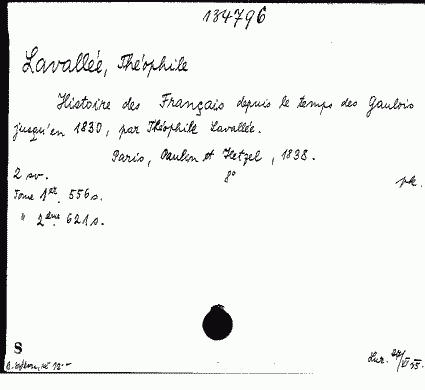 134796
Lavallée, Théophile
Histoire des Français depuis le temps des Gaulois
jusqu'en 1830, par Théophile Lavallée.
Paris, Paulin et Hetzel, 1838.
2 sv. 8° pk.
Tome 1er. 556 s.
" 2ème. 621 s.
S